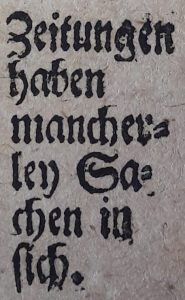 Zeitungen
haben
mancher⸗
ley Sa⸗
chen in
sich.